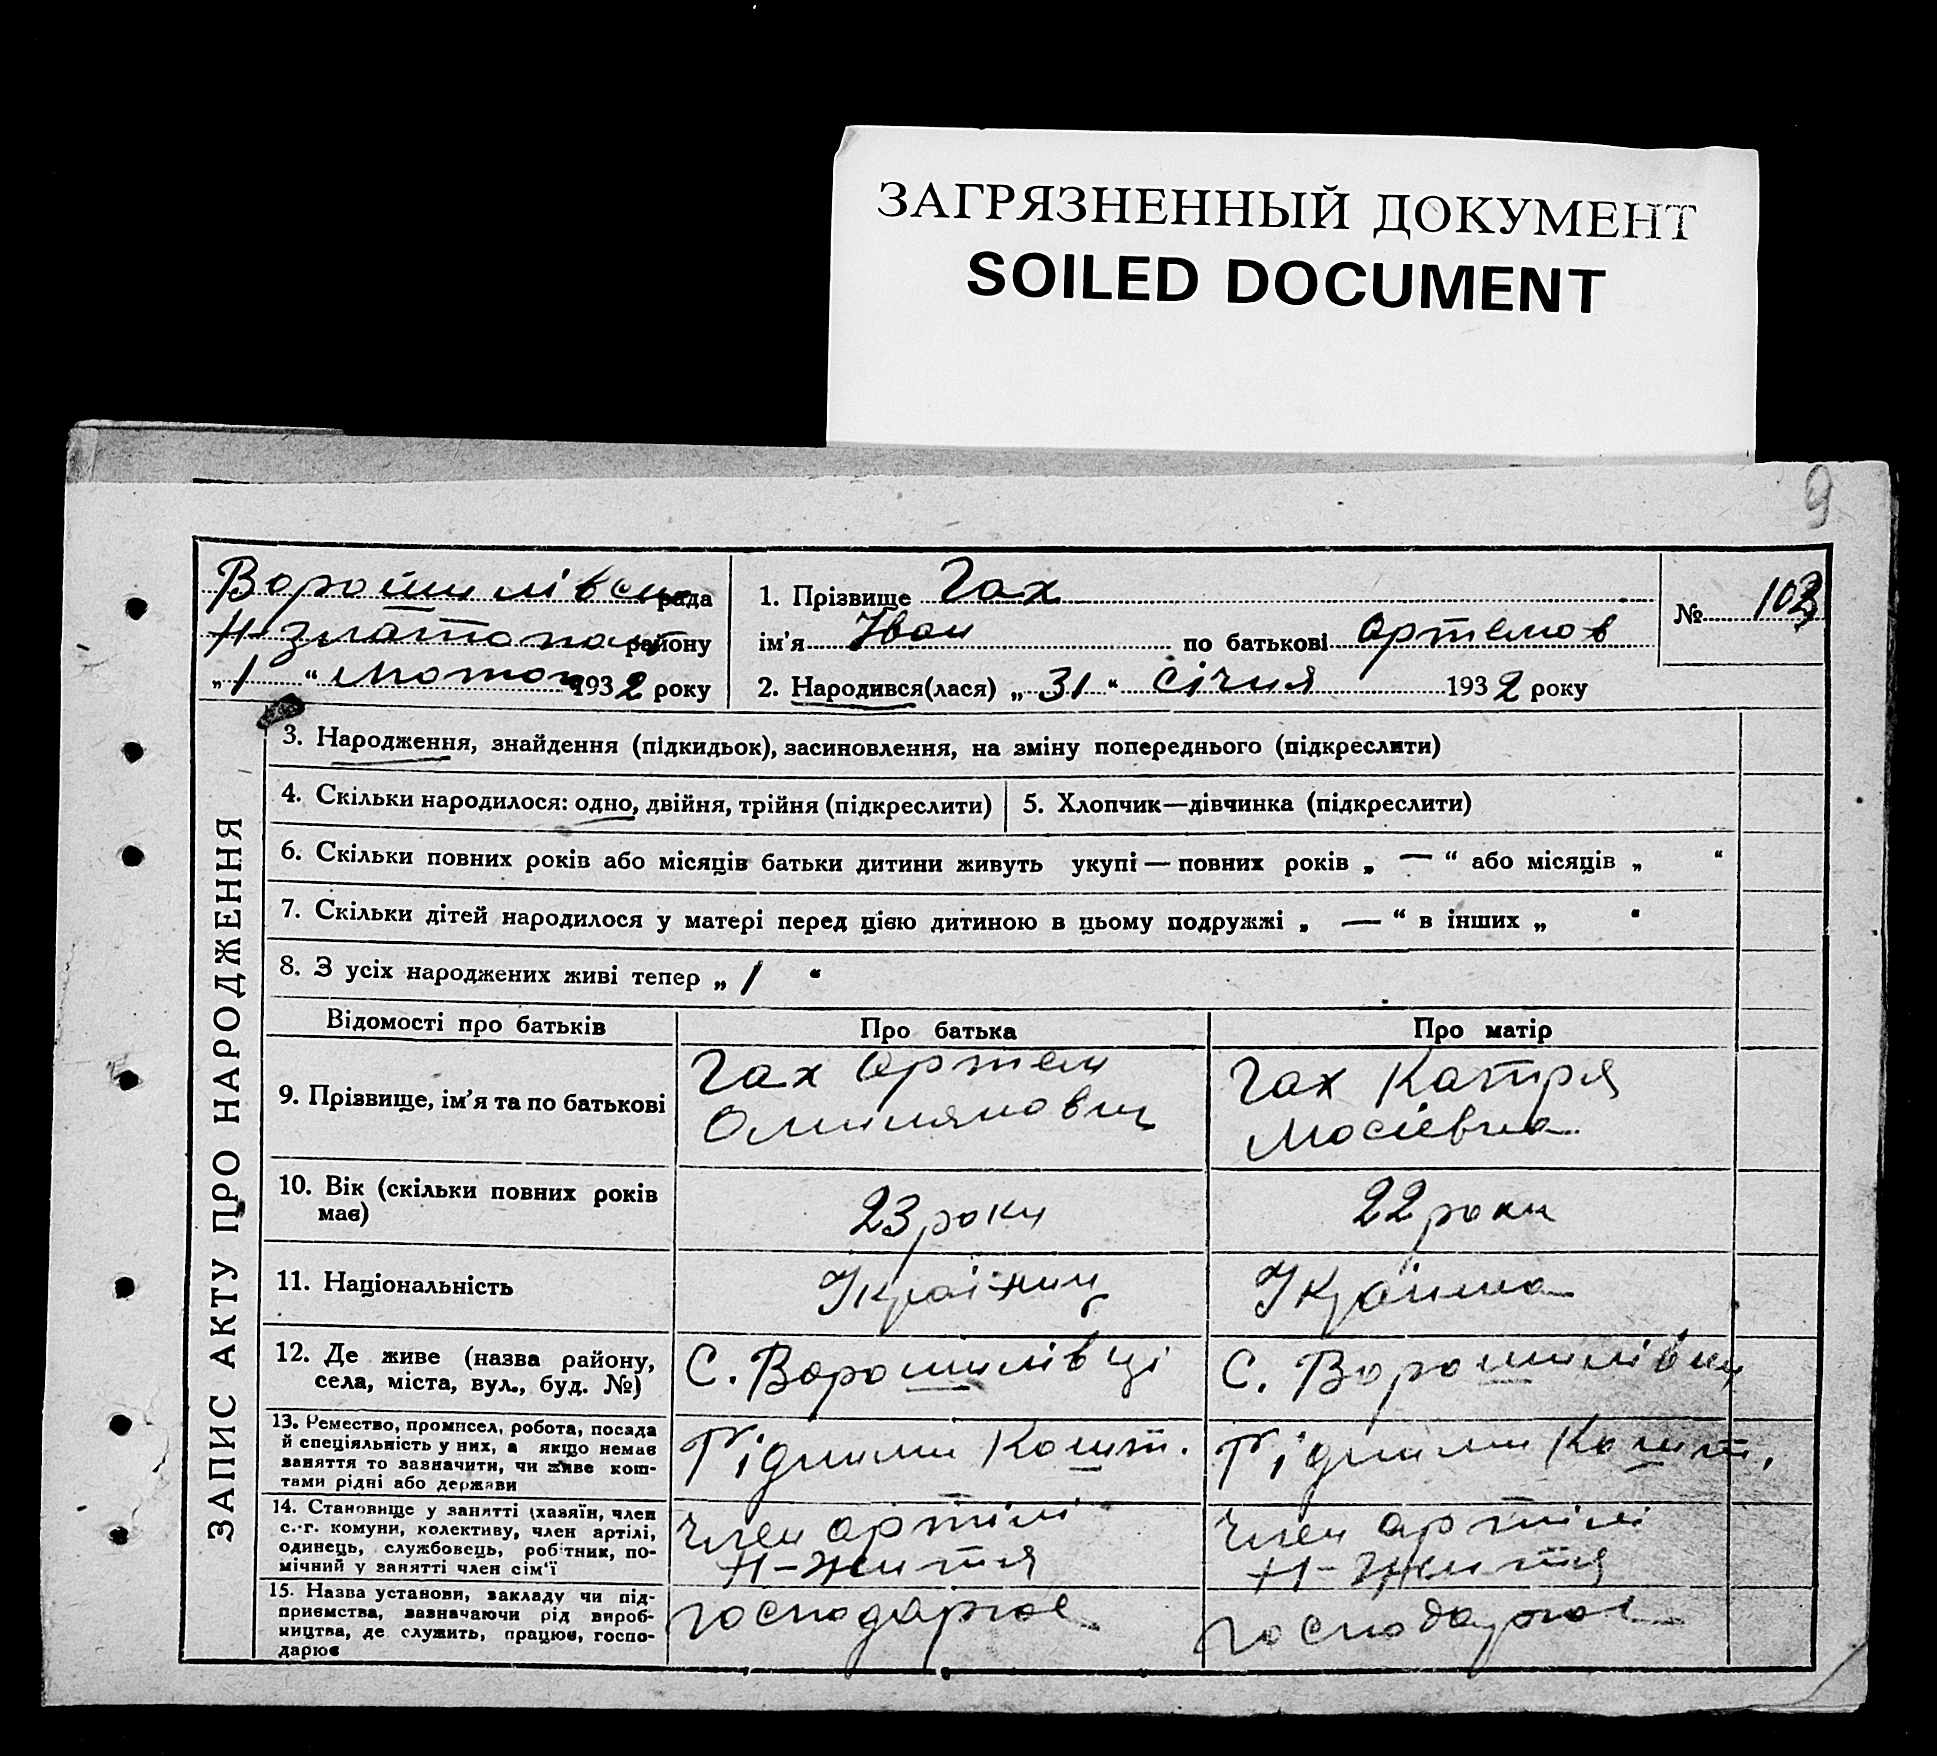 ЗАГРЯЗНЕННЫЙ ДОКУМЕНТ
SOILED DOCUMENT
9
Ворошилівська рада
Н-Златопол району
„1“ лютого 1932 року
1. Прізвище Гах
ім'я Іван по батькові Артемов
2. Народився(лася) „31“ січня 1932 року
№ 103
ЗАПИС АКТУ ПРО НАРОДЖЕННЯ
3. Народження, знайдення (підкидьок), засиновлення, на зміну попереднього (підкреслити)
4. Скільки народилося: одно, двійня, трійня (підкреслити)
5. Хлопчик—дівчинка (підкреслити)
6. Скільки повних років або місяців батьки дитини живуть укупі — повних років „ — “ або місяців „ “
7. Скільки дітей народилося у матері перед цією дитиною в цьому подружжі „ — “ в інших „ “
8. З усіх народжених живі тепер „ 1 “
Відомості про батьків
Про батька
Про матір
9. Прізвище, ім'я та по батькові
Гах Артем
Омилянович
Гах Катря
Мосієвна
10. Вік (скільки повних років
має)
23 роки
22 роки
11. Національність
Україниц
Українка
12. Де живе (назва району,
села, міста, вул., буд. №)
С. Ворошилівці
С. Ворошилівки
13. Ремество, промисел, робота, посада
й спеціяльність у них, а якщо немає
заняття то зазначити, чи живе кош-
тами рідні або держави
Рідними Кошт.
Рідними Кошт.
14. Становище у занятті (хазяїн, член
с.-г. комуни, колективу, член артілі,
одинець, службовець, робітник, по-
мічний у занятті член сім'ї
член артілі
Н-Життя
член артілі
Н-Життя
15. Назва установи, закладу чи під-
приємства, зазначаючи рід вироб-
ництва, де служить, працює, госпо-
дарює
господарює
господарює